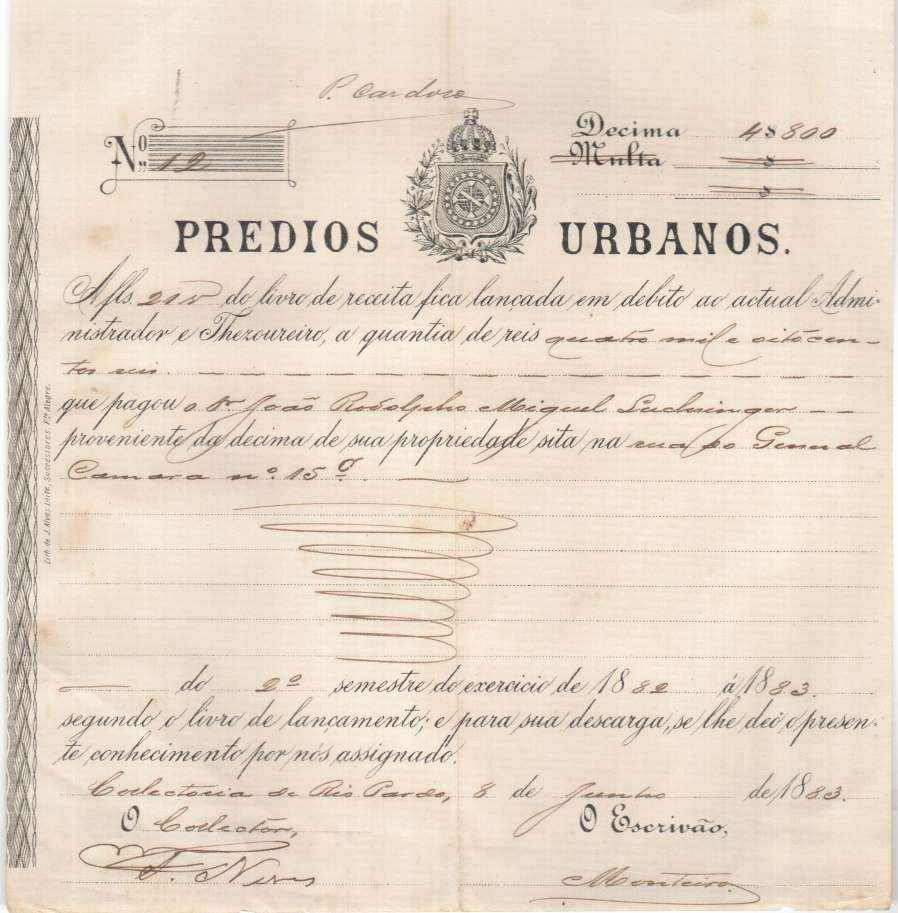 P. Cardoso
Nº 12
Decima 4$800
Multa $
$
PREDIOS URBANOS.
A fls. 21v do livro de receita fica lançada em debito ao actual Admi-
nistrador e Thezoureiro, a quantia de reis quatro mil e oitocen-
tos reis.
que pagou o Sr. João Rodolpho Miguel Luchsinger
proveniente da decima de sua propriedade sita na rua do General
Camara nº. 15
do 2º semestre do exercicio de 1882 á 1883.
segundo o livro de lançamento; e para sua descarga, se lhe deo o presen-
te conhecimento por nós assignado.
Collectoria de Rio Pardo, 8 de Junho de 1883.
O Collector, O Escrivão,
F. Neves
Monteiro
Lith. de J. Alves Leite, Successores. Pto. Alegre.